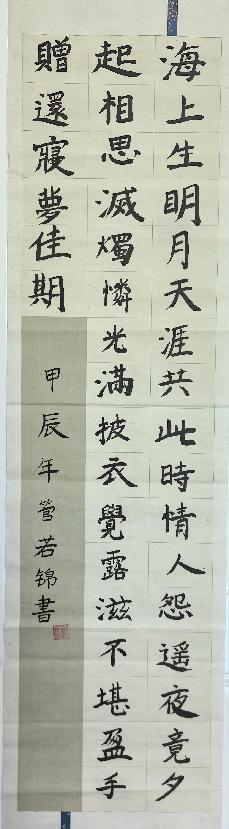 海上生明月天涯共此時情人怨遥夜竟夕
起相思滅燭憐光滿披衣覺露滋不堪盈手
贈還寢夢佳期
甲辰年管若锦書